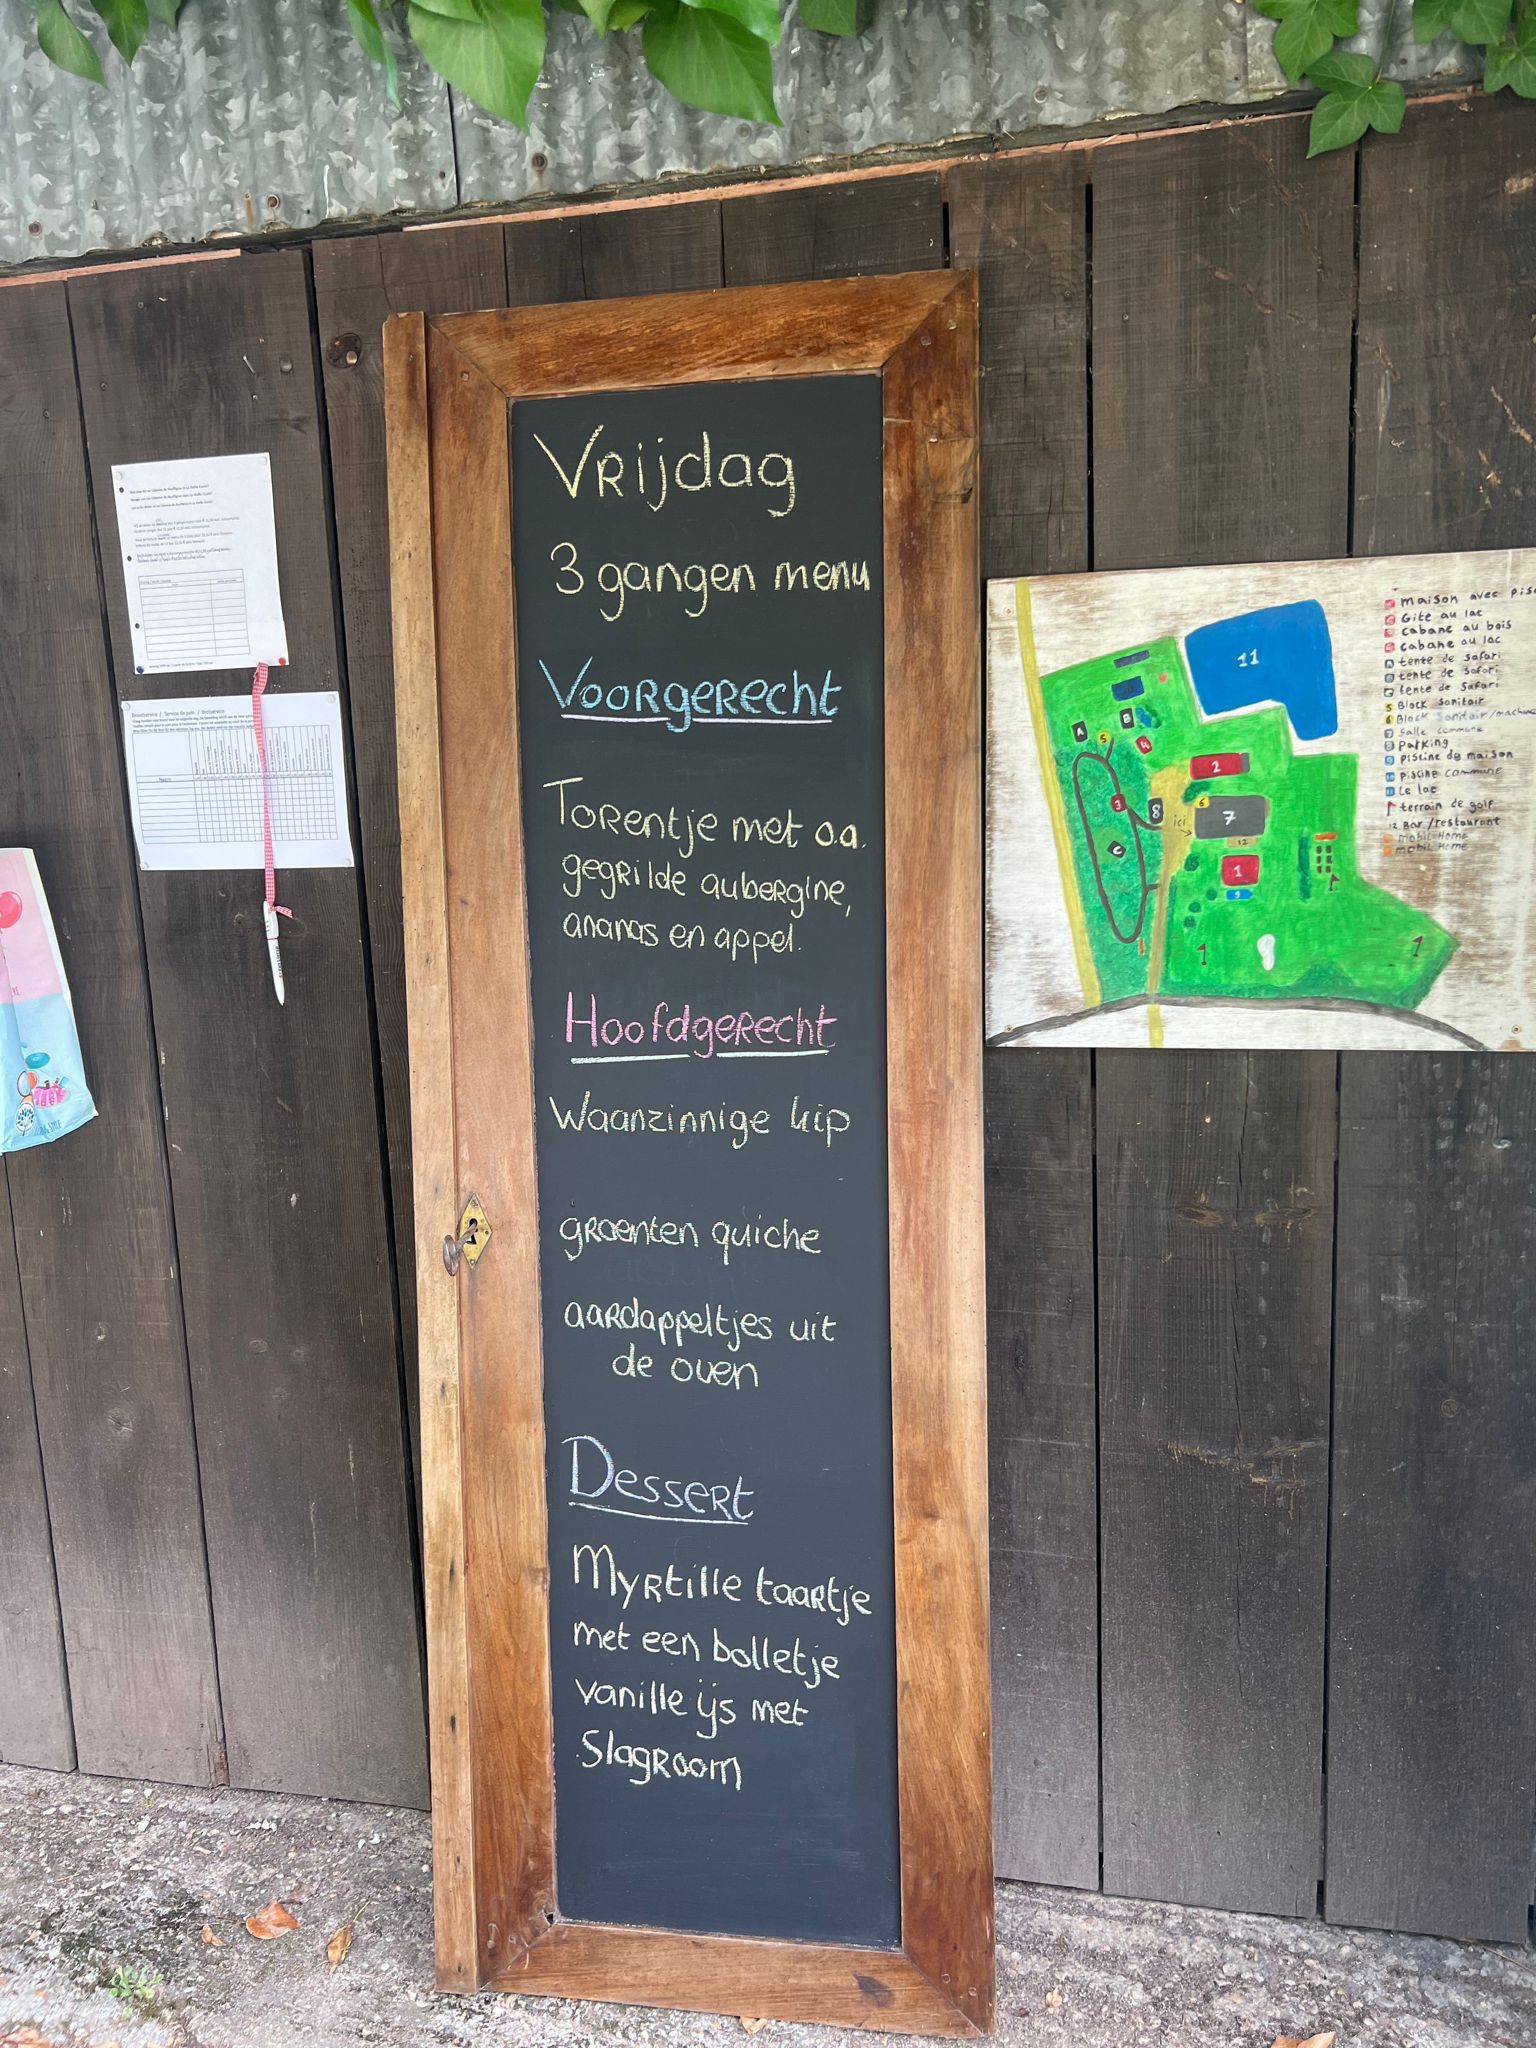 Vrijdag
3 gangen menu
Voorgerecht
Torentje met o.a.
gegrilde aubergine,
ananas en appel.
Hoofdgerecht
Waanzinnige kip
groenten quiche
aardappeltjes uit
de oven
Dessert
Myrtille taartje
met een bolletje
vanille ijs met
Slagroom
Broodservice / Service de pain / Brotservice
Naam
maison avec
Gite au lac
cabane au bois
cabane au lac
A tente de safari
tente de safari
tente de safari
5 Block sanitair
6 Block sanitair/machine
7 salle commune
8 parking
9 piscine de maison
10 piscine commune
11 Le lac
terrain de golf
12 Bar/restaurant
mobil Home
mobil Home
11
A
B
5
4
2
3
8
6
7
ici
12
C
1
9